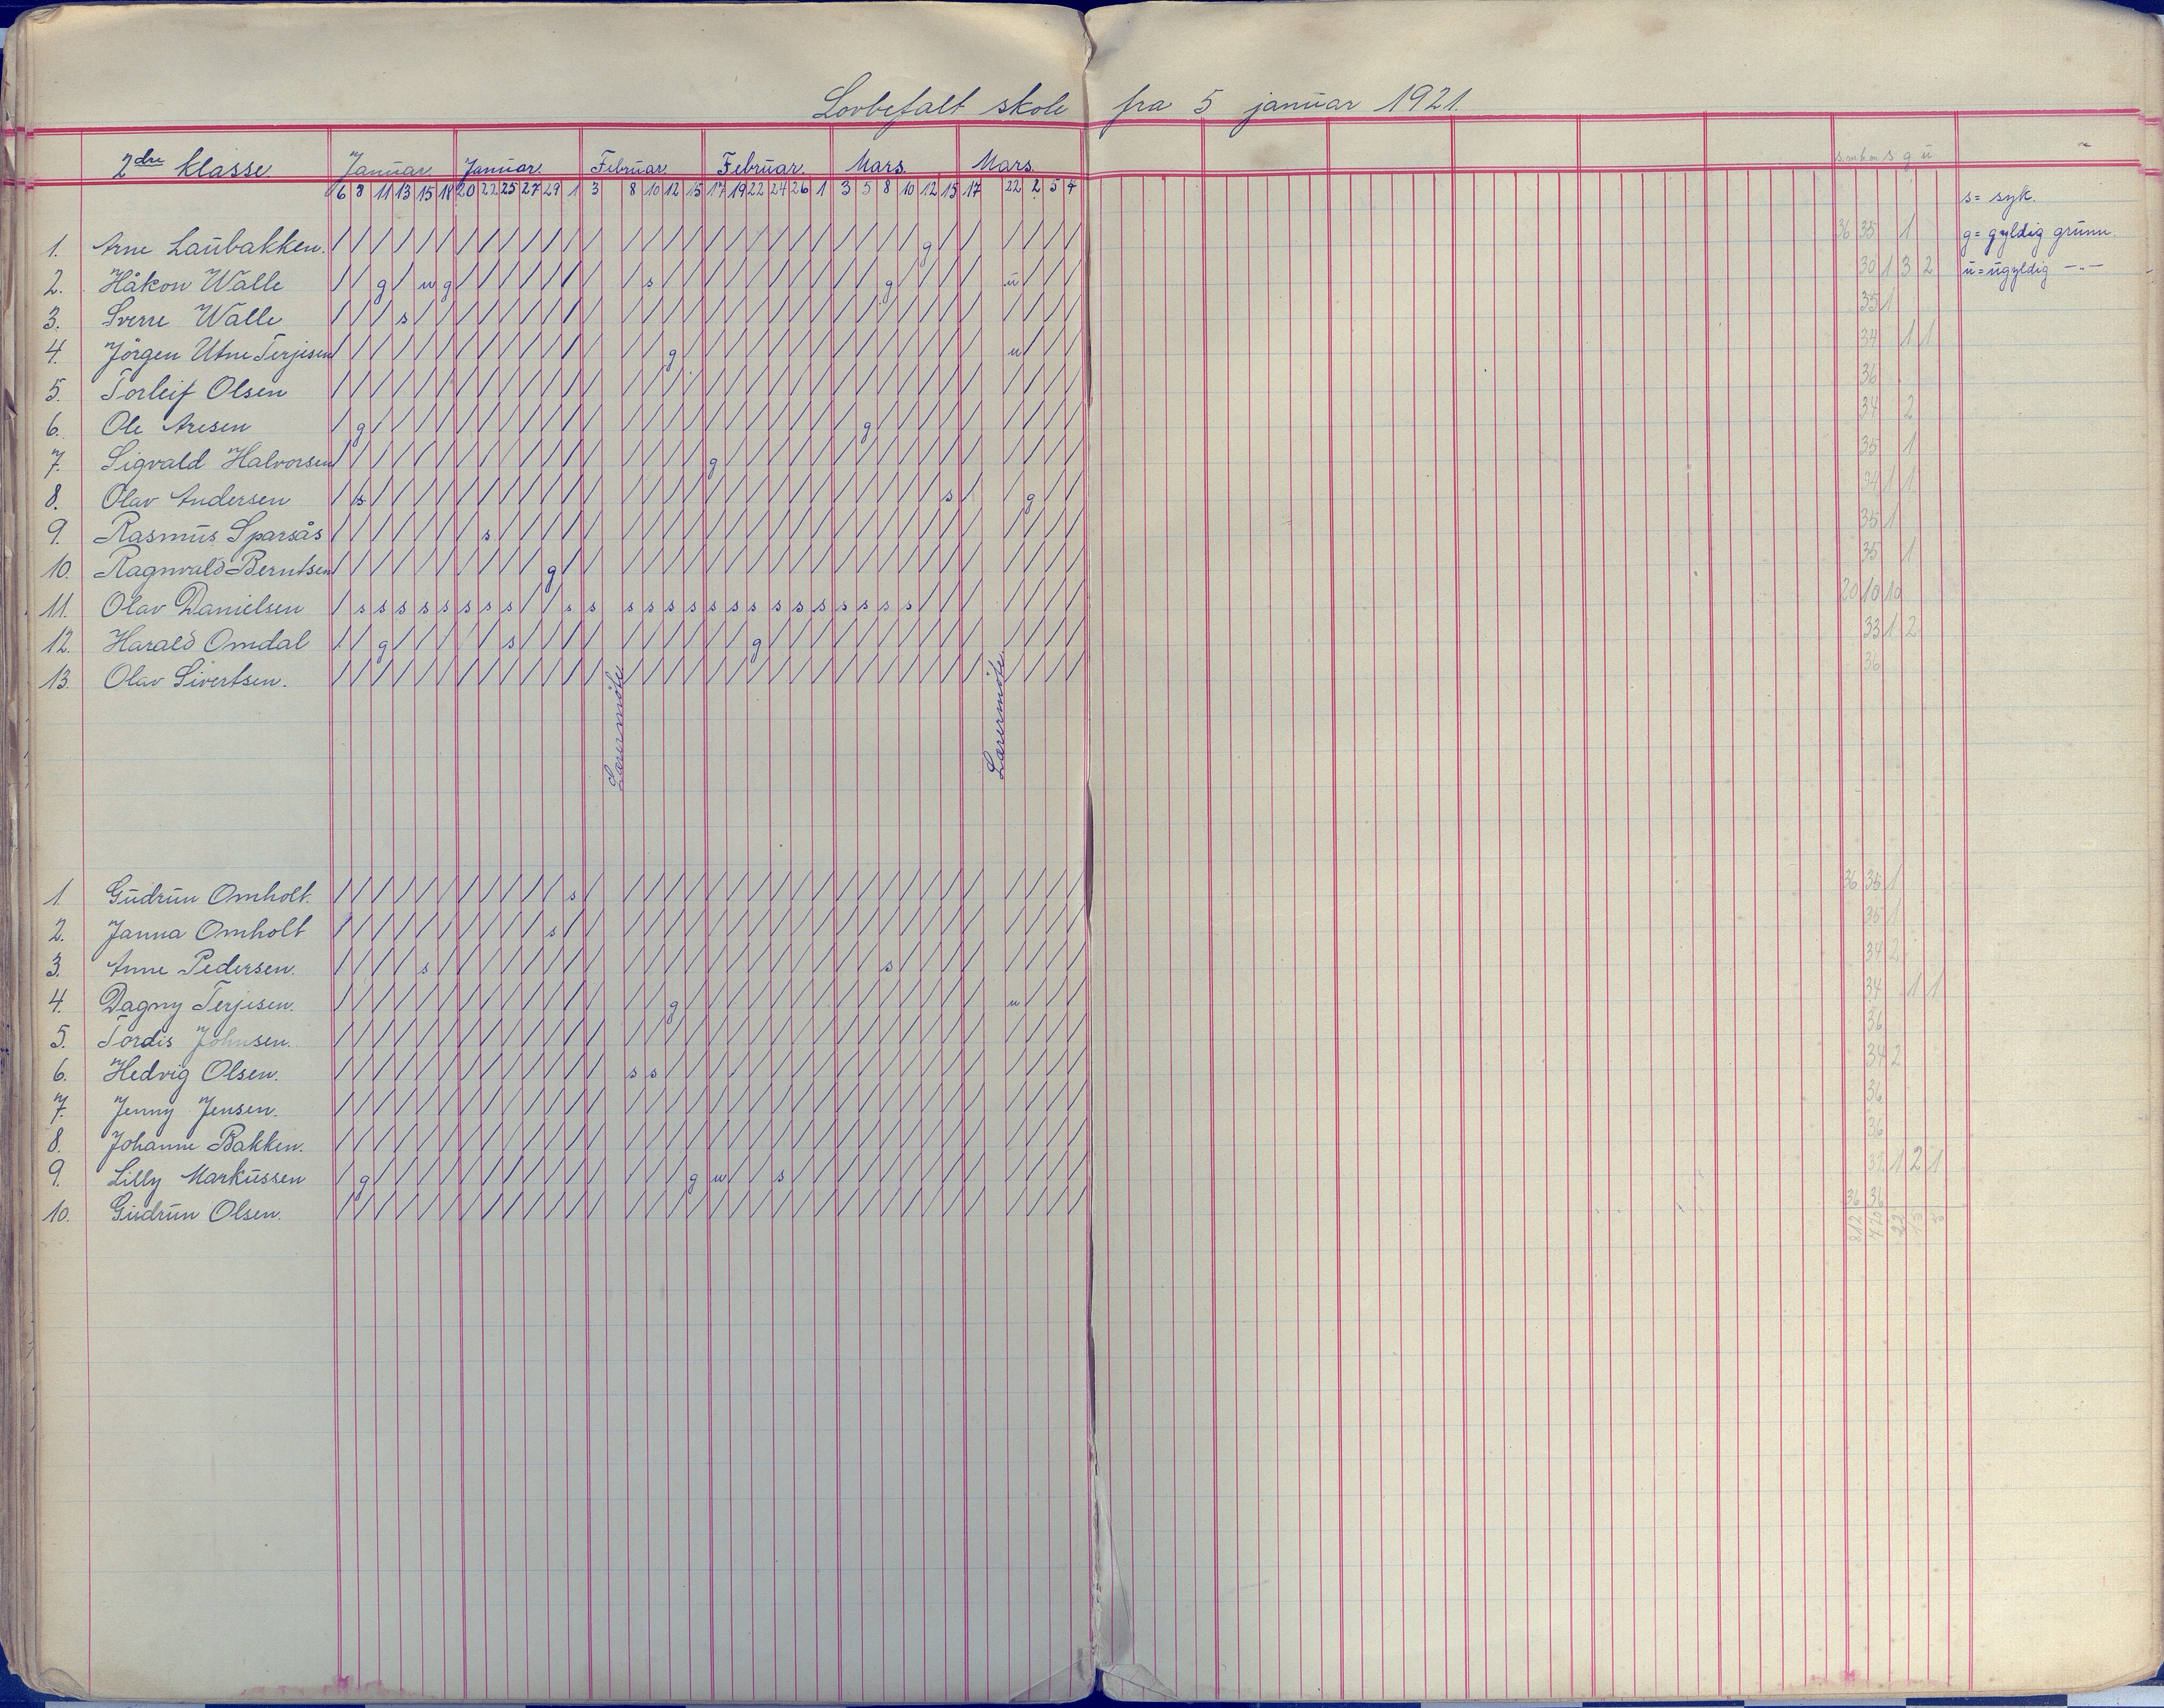 Lovbefalt skole fra 5 januar 1921.
2dre klasse. Januar. Januar. Februar. Februar. Mars. Mars. s g u
6 8 11 13 15 18 20 22 25 27 29 1 3 8 10 12 15 17 19 22 24 26 1 3 5 8 10 12 15 17 22 2 5 7
s = syk.
1. Arne Laubakken. / / / / / / / / / / / / / / / / / / / / / / / / / / / g / / / / / / 36 35 1 g = gyldig grunn.
2. Håkon Walle / / g / u g / / / / / / / / s / / / / / / / / / / g / / / / u / / / 30 1 3 2 u = ugyldig -"-
3. Sverre Walle / / / s / / / / / / / / / / / / / / / / / / / / / / / / / / / / / / 35 1
4. Jörgen Utne Terjesen / / / / / / / / / / / / / / / g / / / / / / / / / / / / / / u / / / 34 1 1
5. Torleif Olsen / / / / / / / / / / / / / / / / / / / / / / / / / / / / / / / / / / 36
6. Ole Aresen / g / / / / / / / / / / / / / / / / / / / / / / g / / / / / / / / / 34 2
7. Sigvald Halvorsen / / / / / / / / / / / / / / / / / g / / / / / / / / / / / / / / / / 35 1
8. Olav Andersen / s / / / / / / / / / / / / / / / / / / / / / / / / / / s / / g / / 34 1 1
9. Rasmus Sparsås / / / / / / / s / / / / / / / / / / / / / / / / / / / / / / / / / / 35 1
10. Ragnvald Berntsen / / / / / / / / / / g / / / / / / / / / / / / / / / / / / / / / / / 35 1
11. Olav Danielsen / s s s s s s s s / / s s s s s s s s s s s s s s s s / / / / / / / 20 10 10
12. Harald Omdal / / g / / / / / s / / / / / / / / / / g / / / / / / / / / / / / / / 33 1 2
13. Olav Sivertsen. / / / / / / / / / / / / / / / / / / / / / / / / / / / / / / / / / / 36
Lærermöte
Lærermöte
1. Gudrun Omholt. / / / / / / / / / / / s / / / / / / / / / / / / / / / / / / / / / / 36 35 1
2. Janna Omholt / / / / / / / / / / s / / / / / / / / / / / / / / / / / / / / / / / 35 1
3. Anne Pedersen. / / / / s / / / / / / / / / / / / / / / / / / / / s / / / / / / / / 34 2
4. Dagny Terjesen. / / / / / / / / / / / / / / / g / / / / / / / / / / / / / / u / / / 34 1 1
5. Tordis Johnsen. / / / / / / / / / / / / / / / / / / / / / / / / / / / / / / / / / / 36
6. Hedvig Olsen. / / / / / / / / / / / / / s s / / / / / / / / / / / / / / / / / / / 34 2
7. Jenny Jensen. / / / / / / / / / / / / / / / / / / / / / / / / / / / / / / / / / / 36
8. Johanne Bakken. / / / / / / / / / / / / / / / / / / / / / / / / / / / / / / / / / / 36
9. Lilly Markussen / g / / / / / / / / / / / / / / g u / / s / / / / / / / / / / / / / 32 1 2 1
10. Gudrun Olsen. / / / / / / / / / / / / / / / / / / / / / / / / / / / / / / / / / / 36 36